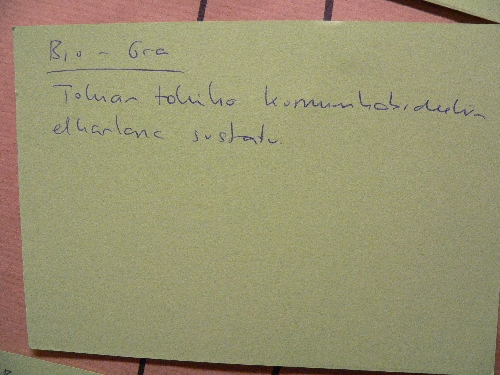 Bio - Gra
Tokian tokiko komunikabideekin
elkarlana sustatu.